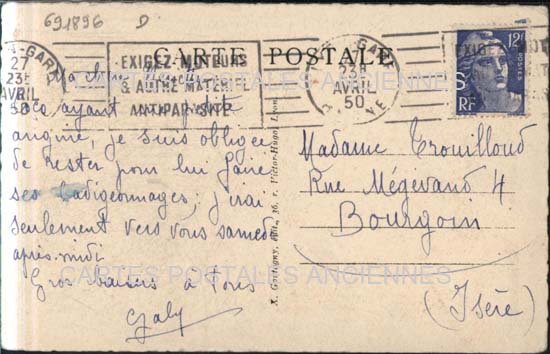 691896 D
CARTE POSTALE
GARE
27
23E
AVRIL
50
EXIGEZ MOTEURS
& AUTRE MATERIEL
ANTIPARASITE
GARE
23E
AVRIL
50
12F
POSTES
RF
Ma chère
ayant une petite
angine, je suis obligée
de rester pour lui faire
ses badigeonnages; j'irai
seulement vers vous samedi
après-midi
Gros baisers à tous
Galy
X. Goutagny, édit., 36, r. Victor-Hugo, Lyon
Madame Trouilloud
Rue Mégevand 4
Bourgoin
(Isère)
CARTES POSTALES ANCIENNES
CARTES POSTALES ANCIENNES